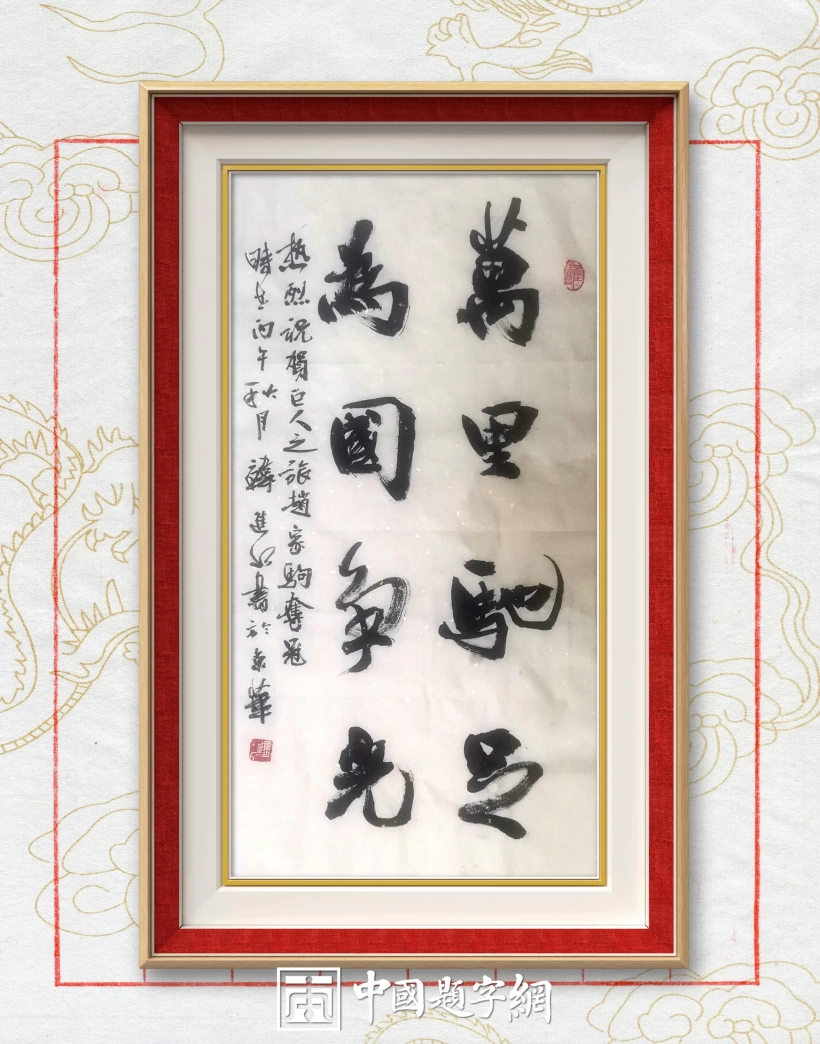 萬里馳足
為國争光
熱烈祝賀巨人之旅趙家駒奪冠
時在丙午秋月 韓進水書於京華
中國題字網